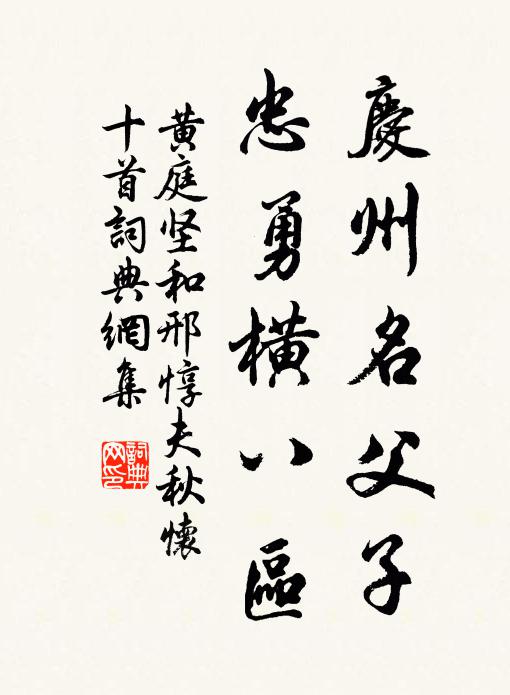 慶州名父子
忠勇橫八區
黃庭坚和邢惇夫秋懷
十首詞典網集
詞典网印